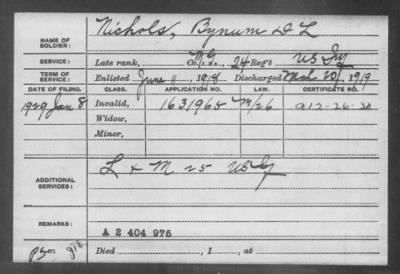 NAME OF SOLDIER: Nichols, Bynum D L
SERVICE: Late rank, Co. M.G. Co., 24 Reg't US Inf
TERM OF SERVICE: Enlisted June 11, 1918 Discharged Mch 20, 1919
DATE OF FILING. CLASS. APPLICATION NO. LAW. CERTIFICATE NO.
1929 Jan 8 Invalid, 1631965 M/26 912-26-30
Widow,
Minor,
ADDITIONAL SERVICES: L & M 25 US Inf
REMARKS: A 2 404 976
Died , 1 , at